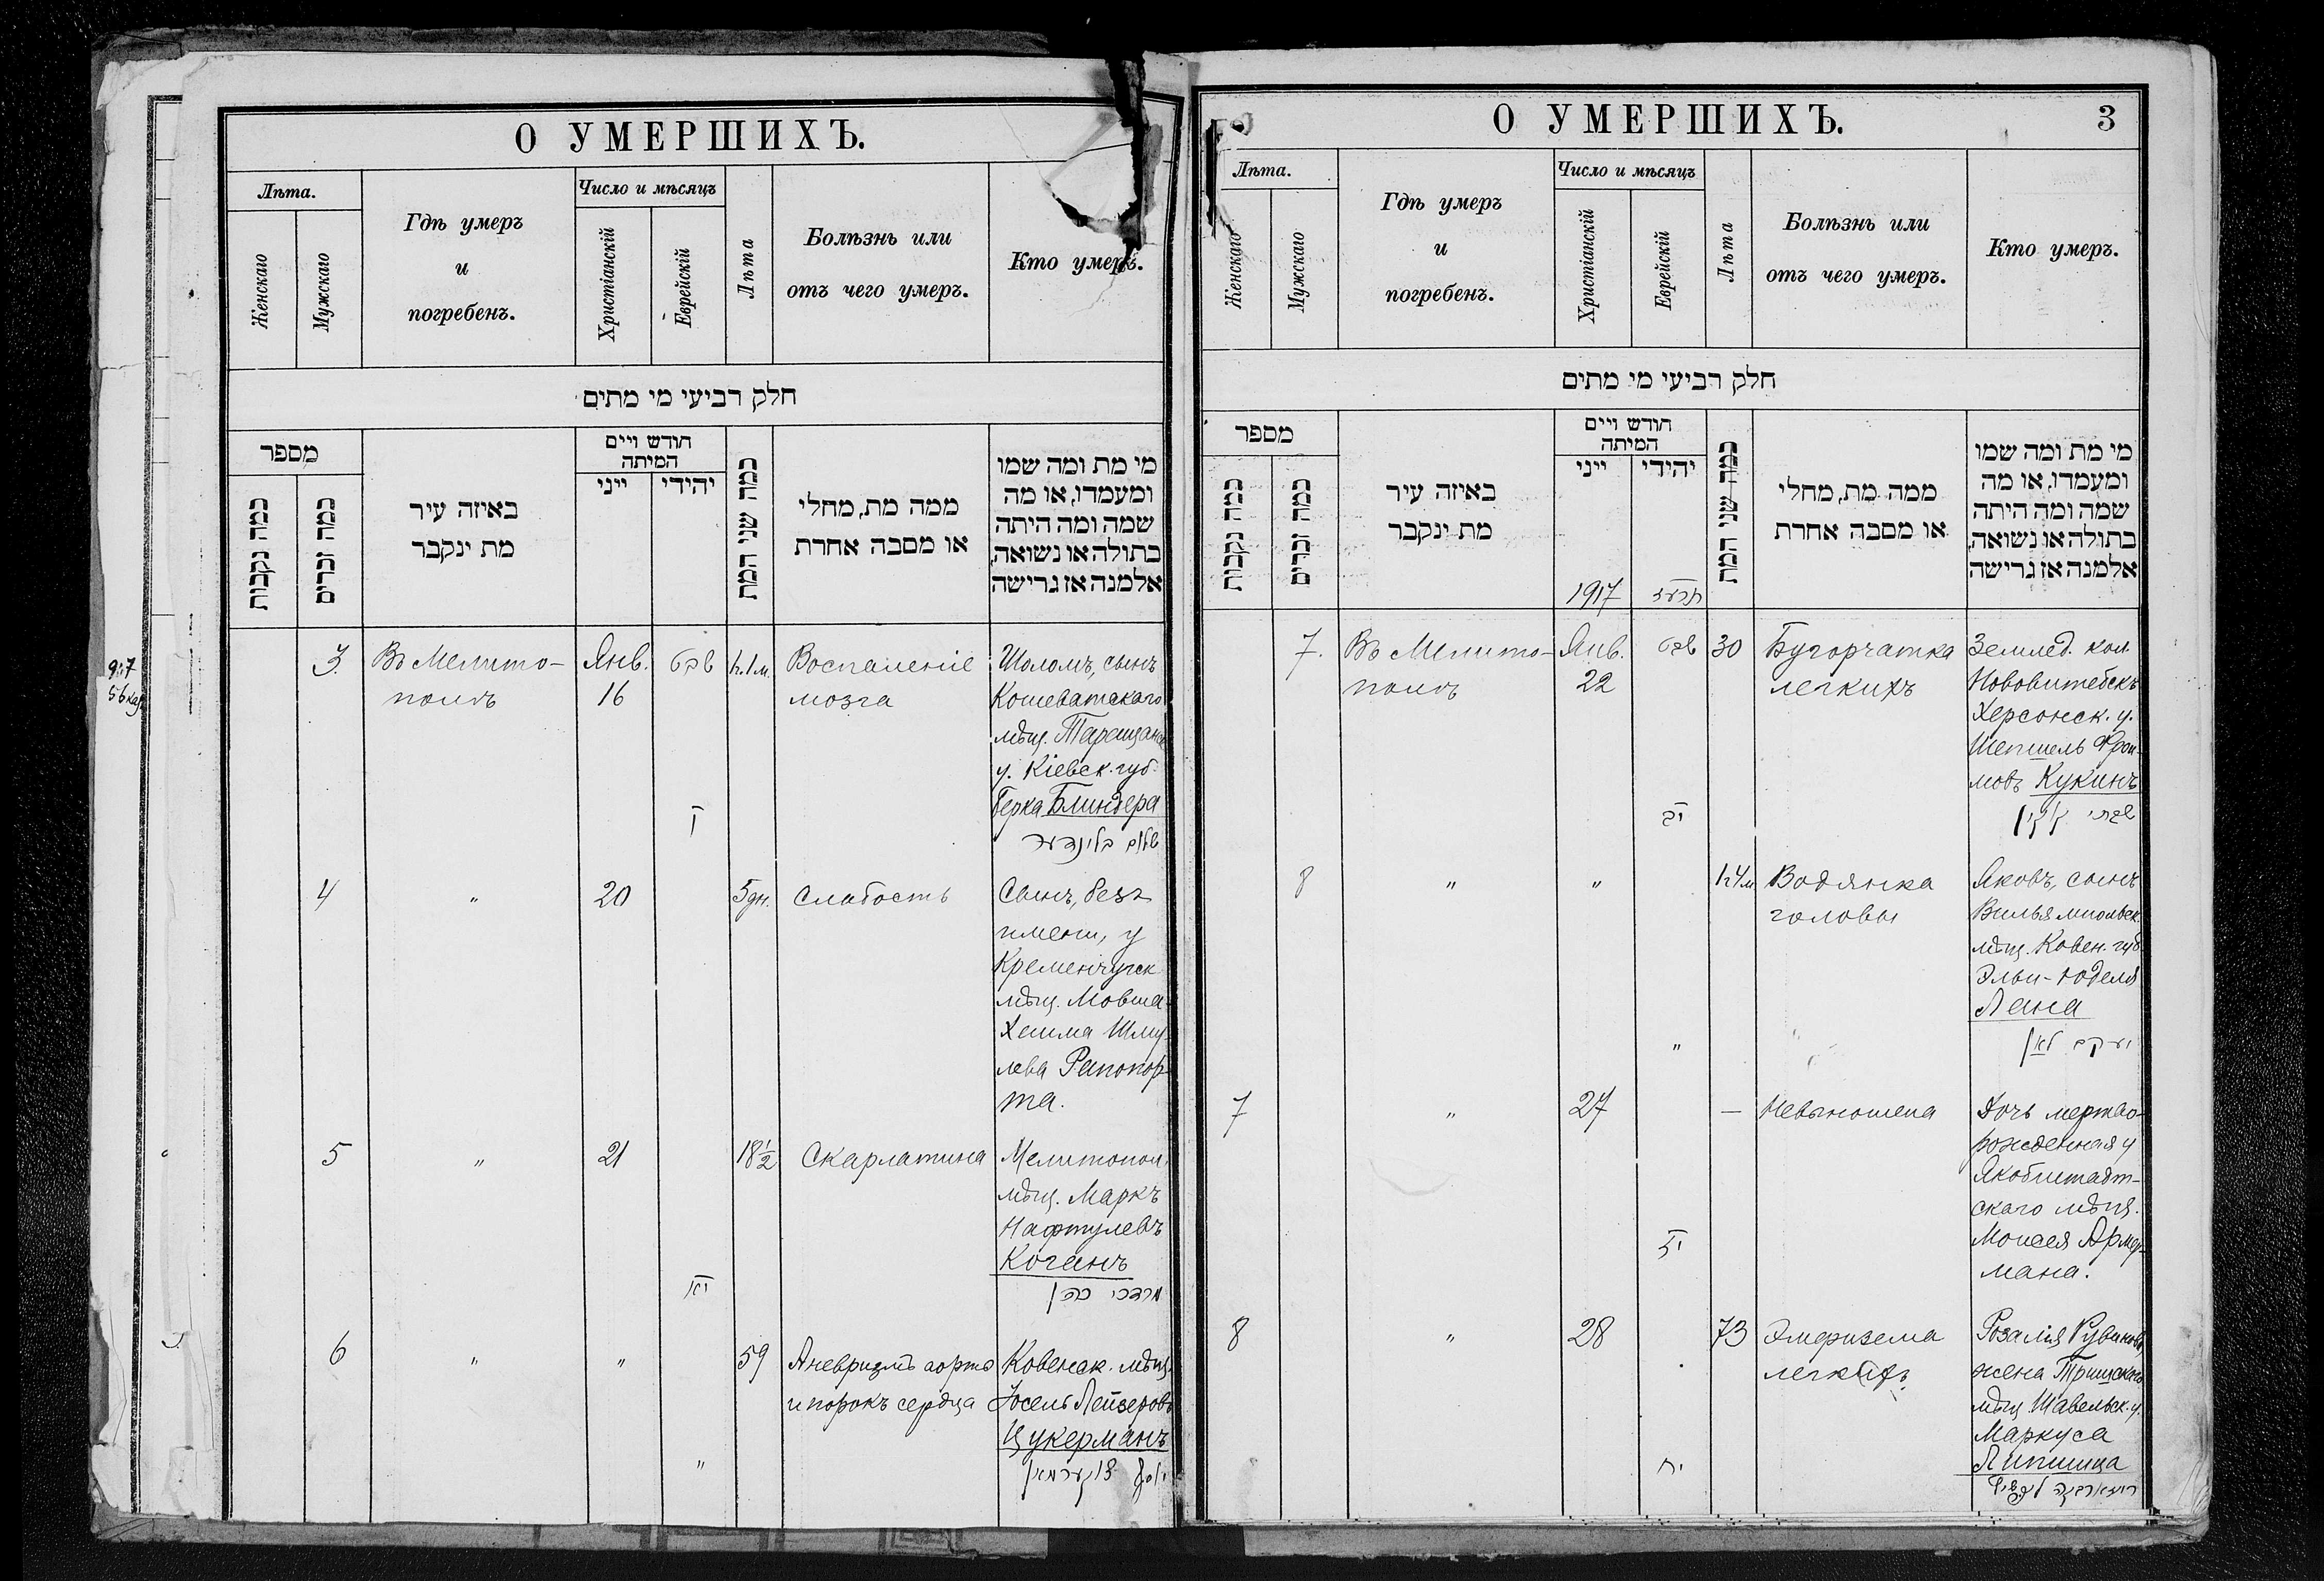 О УМЕРШИХЪ.
Лѣта.
Женскаго
Мужскаго
Гдѣ умеръ
и
погребенъ.
Число и мѣсяцъ
Христіанскій
Еврейскій
Лѣта
Болѣзнь или
отъ чего умеръ.
Кто умеръ.
חלק רביעי מי מתים
מספר
כמה נקבות
כמה זכרים
באיזה עיר
מת ינקבר
חודש ויים
המיתה
ייני
יהידי
כמה שני המת
ממה מת, מחלי
או מסבה אחרת
מי מת ומה שמו
ומעמדו, או מה
שמה ומה היתה
בתולה או נשואה,
אלמנה אז גרישה
3.
Въ Мелито-
полѣ
Янв.
16
שבט
Воспаленіе
мозга
Шоломъ, сынъ
Кошеватскаго
мѣщ. Таращанск
у. Кіевск. губ.
Берка Блиндера
שלום בלינדער
4
"
20
5 дн.
Слабость
Сынъ, безъ
имени, у
Кременчугск
мѣщ. Мовша-
Хаима Шму-
лева Рапопор-
та.
5
"
21
יא
18½
Скарлатина
Мелитопол.
мѣщ. Маркъ
Нафтулевъ
Коганъ
מרדכי כהן
6
"
"
"
59
Аневризмъ аорты
и порокъ сердца
Ковенск. мѣщ.
Іосель Лейзеровъ
Цукерманъ
יוסף צוקערמאן
О УМЕРШИХЪ.
3
Лѣта.
Женскаго
Мужскаго
Гдѣ умеръ
и
погребенъ.
Число и мѣсяцъ
Христіанскій
Еврейскій
Лѣта
Болѣзнь или
отъ чего умеръ.
Кто умеръ.
חלק רביעי מי מתים
מספר
כמה נקבות
כמה זכרים
באיזה עיר
מת ינקבר
חודש ויים
המיתה
ייני
יהידי
1917
תרעז
כמה שני המת
ממה מת, מחלי
או מסבה אחרת
מי מת ומה שמו
ומעמדו, או מה
שמה ומה היתה
בתולה או נשואה,
אלמנה אז גרישה
7.
Въ Мелито-
полѣ
Янв.
22
שבט
30
Бугорчатка
легкихъ
Землед. кол.
Нововитебскъ
Херсонск. у.
Шепшель Фрои-
мовъ Кукинъ
שבתי קוקין
8
"
"
"
1 г. 4 м
Водянка
головы
Яковъ, сынъ
Вильямпольск
мѣщ. Ковен. губ
Эльи-Юделя
Лана
יעקב לאן
7
"
27
—
Невыношена
Дочь мертво-
рожденная у
Якобштадт-
скаго мѣщ.
Моисея
мана.
8
"
28
יח
73
Эмфизема
легкихъ
Розалія Рувинова,
жена Тришскаго
мѣщ. Шавельск. у.
Маркуса
Липшица